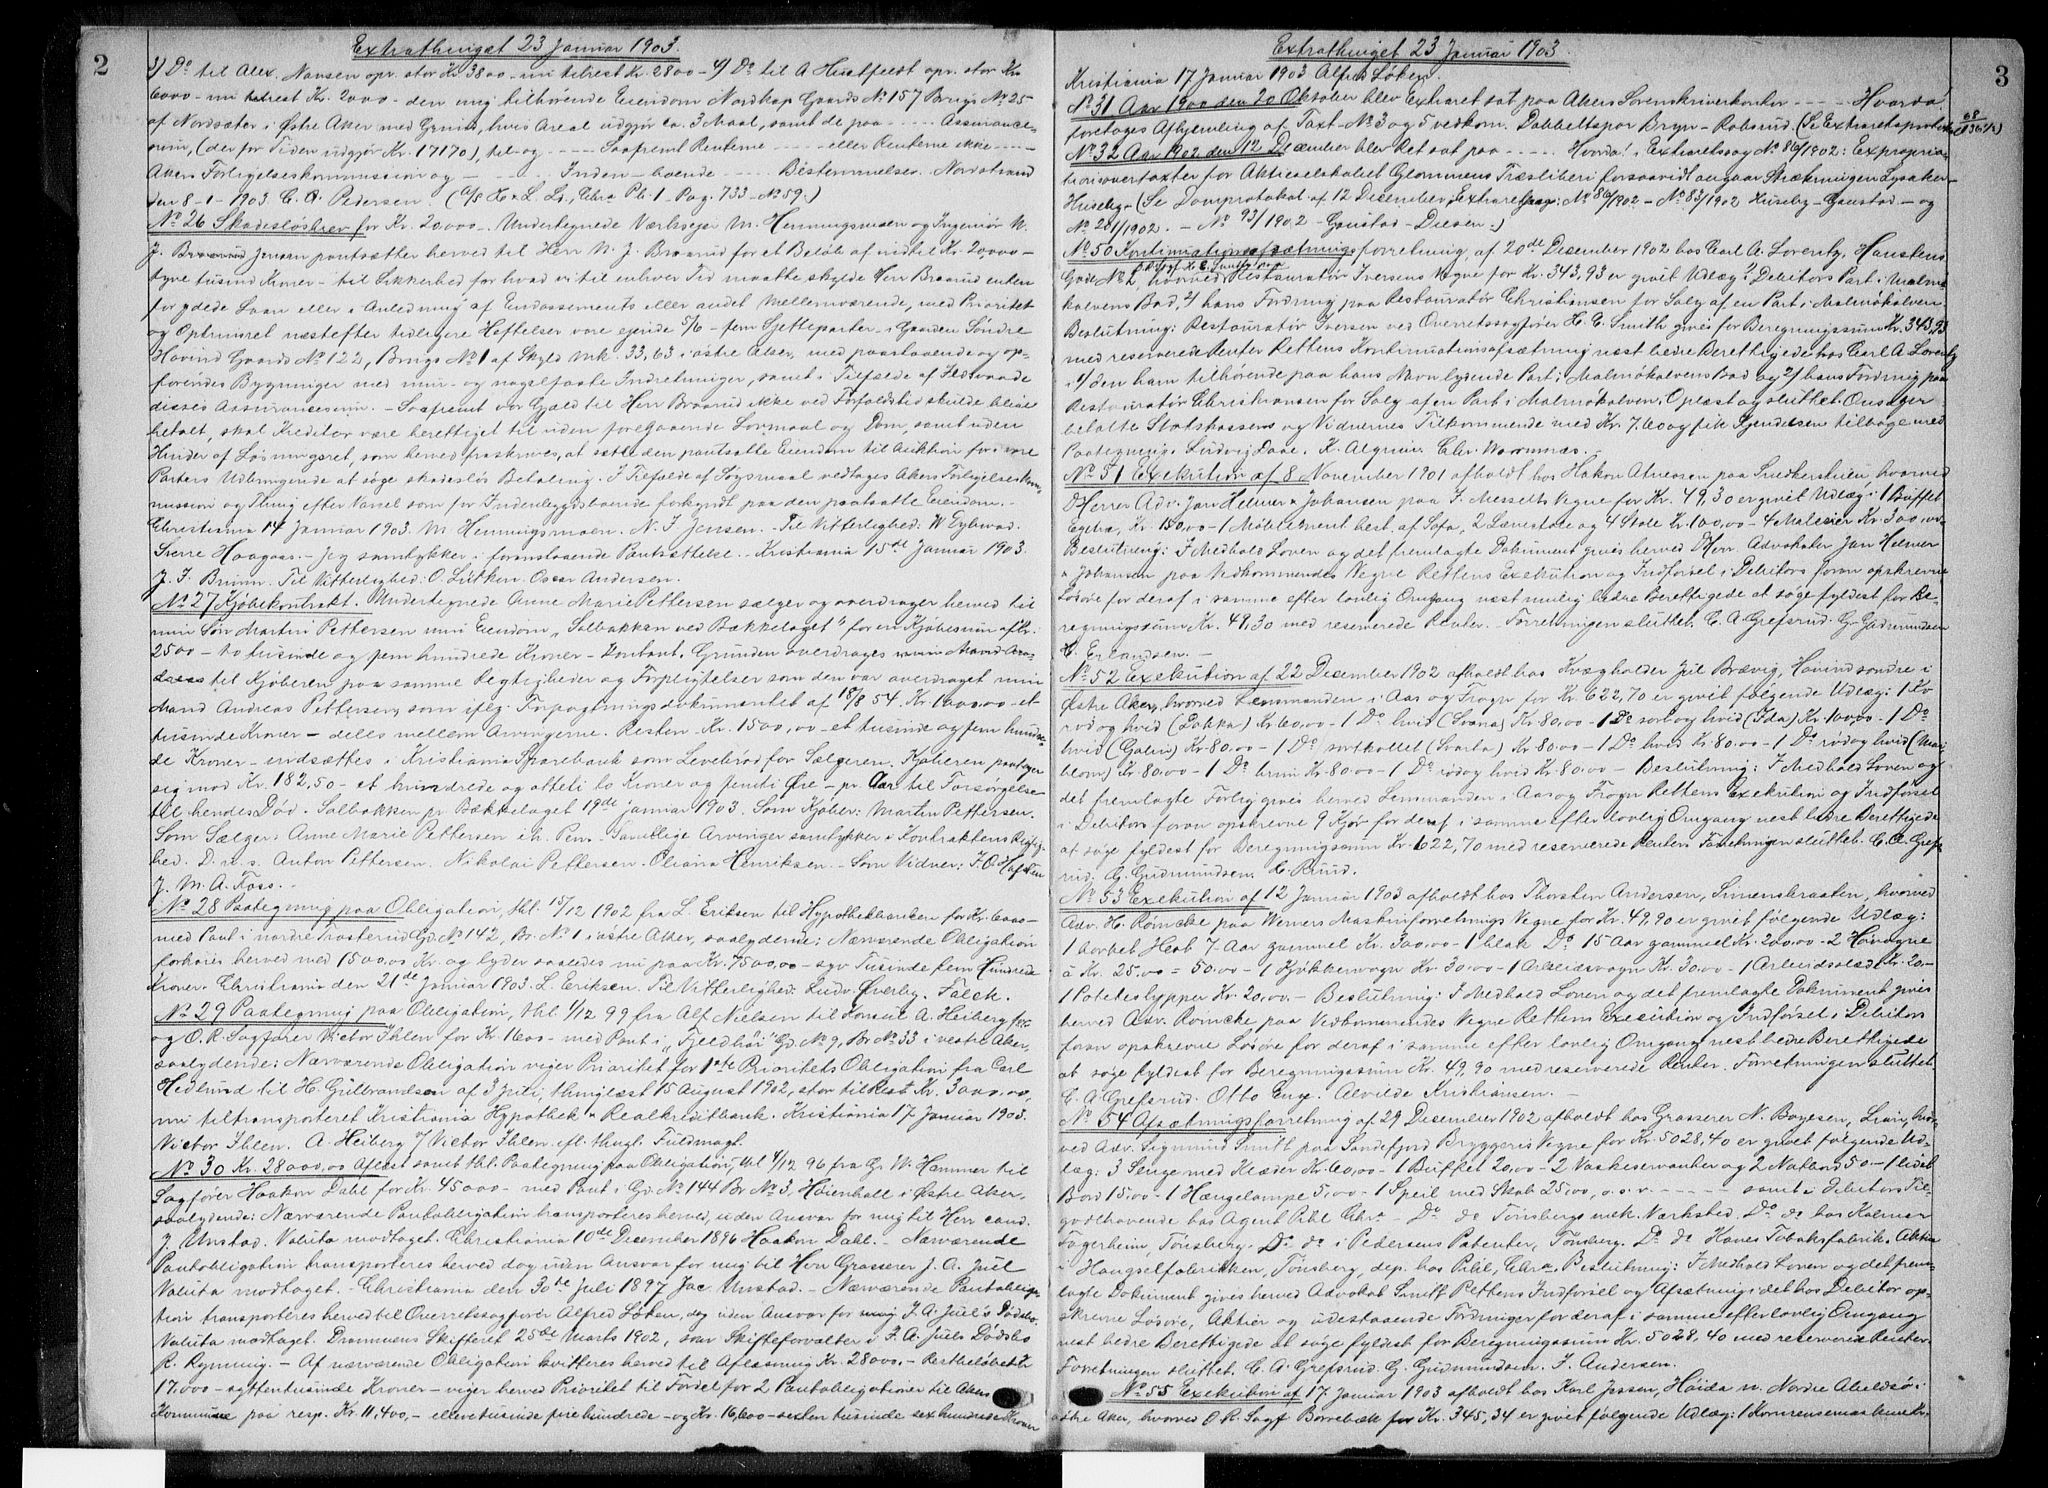 2
Extrathinget 23 Januar 1903.
3) Do til Alex. Nansen opr. stor Kr. 3800 - nu tilrest Kr. 2800 - 4) Do til A Huitfeldt opr. stor Kr
6000 - nu tilrest Kr. 2000 - den mig tilhørende Eiendom Nordkap Gaards No 157 Brugs No 25
af Nordsæter i Østre Aker med Grund, hvis Areal udgjør ca. 3 Maal, samt de paa - - - - Assurance-
sum, (der for Tiden udgjør Kr. 17170), til - og - - - - Saafremt Renterne - - - - eller Renterne ikke - - - -
Akers Forligelseskommission og - - - - Inden - boende - - - - Bestemmelser. Nordstrand
den 8 - 1 - 1903 C. B. Pedersen.
No 26 Skadesløsbrev for Kr. 20.000 - Undertegnede Værkseier M. Hemmingsmoen og Ingeniør N.
J. Jensen pantsætter herved til Herr N. J. Braarud for et Beløb af indtil Kr. 20000 -
tyve tusind Kroner - til Sikkerhed for hvad vi til enhver Tid maatte skylde Herr Braarud enten
for ydede Laan eller i Anledning af Endossements eller andet Mellemværende, med Prioritet
og Optrinsret næstefter tidligere Heftelser vore eiende 5/6 - fem Sjetteparter - i Gaarden Søndre
Hovind Gaards No 122, Brugs No 1 af Skyld Mk. 33,63 i østre Aker, med paastaaende og op-
førendes Bygninger med mur - og nagelfaste Indretninger, samt i Tilfælde af Ildsvaade
disses Assurancesum. - Saafremt vor Gjæld til Herr Braarud ikke ved Forfaldstid skulde blive
betalt, skal Kreditor være berettiget til uden foregaaende Lovmaal og Dom, samt uden
Hinder af Løsningsret, som herved fraskrives, at sætte den pantsatte Eiendom til Auktion for i vore
Parters Udbringende at søge skadesløs Betaling. I Tilfælde af Søgsmaal vedtages Akers Forligelseskom-
mission og Thing efter Varsel som for Indenbygdsboende forkyndt paa den pantsatte Eiendom.
Christiania 14 Januar 1903. M. Hemmingsmoen. N. J. Jensen. Til Vitterlighed: W Egberg.
Sverre Haagaas. - Jeg samtykker i foranstaaende Pantsættelse. - Kristiania 15de Januar 1903.
J. F. Bruun. Til Vitterlighed: O. Lütken. Oscar Andersen.
No 27 Kjøbekontrakt. Undertegnede Anne Marie Pettersen sælger og overdrager herved til
min Søn Martin Pettersen min Eiendom "Solbakken ved Bækkelaget" for en Kjøbesum af Kr.
2500 - to tusinde og fem hundrede Kroner - kontant. Grunden overdrages
til Kjøberen paa samme Rettigheder og Forpligtelser som den var overdraget min
Mand Andreas Pettersen, som iflg. Forpagtningsdokumentet af 18/8 54. Kr. 1000,00 - et
tusinde Kroner - deles mellem Arvingerne. Resten - Kr. 1500,00 - et tusinde og fem hundre-
de Kroner - indsættes i Kristiania Sparebank som Levebrød for Sælgeren. Kjøberen paatager
sig mod Kr. 182,50 - et hundrede og otteti to Kroner og femti Øre - pr. Aar til Forsørgelse
til hendes Død. Solbakken pr. Bækkelaget 19de Januar 1903. Som Kjøber: Martin Pettersen.
Som Sælger: Anne Marie Pettersen m. Pen. Samtlige Arvinger samtykker i Kontraktens Rigtig-
hed. D. u. s. Anton Pettersen. Nikolai Pettersen. Oliana Henriksen. Som Vidner: J. O. Hafsten
J. M. A. Foss. -
No 28 Paategning paa Obligation, thl. 15/12 1902 fra L. Eriksen til Hypothekbanken for Kr. 6000 -
med Pant i nordre Trosterud Gd. No 142, Br. No 1 i østre Aker, saalydende: Nærværende Obligation
forhøies herved med 1500,00 Kr. og lyder saaledes nu paa Kr. 7500,00 - syv Tusinde fem Hundrede
Kroner. Christiania den 21de Januar 1903. L. Eriksen. Til Vitterlighed: Ludv. Øverby. Falck.
No 29 Paategning paa Obligation, thl. 1/12 99 fra Alf Nielsen til Konsul A. Heiberg
og O. R. Sagfører Victor Ihlen for Kr. 1600 - med Pant i "Fjeldhøi" Gd. No 9, Br. No 33 i vestre Aker,
saalydende: Nærværende Obligation viger Prioritet for 1ste Prioritets Obligation fra Carl
Hedlund til H. Gulbrandsen af 3 Juli, thinglæst 15 August 1902, stor tilrest Kr. 3000,00,
nu tiltransporteret Kristiania Hypothek & Realkreditbank. Kristiania 17 Januar 1903.
Victor Ihlen. A. Heiberg / Victor Ihlen efl. thingl. Fuldmagt.
No 30 Kr. 28000,00 Aflæst samt thl. Paategning paa Obligation, thl. 4/12 96 fra G. W. Hammer til
Sagfører Haakon Dahl for Kr. 45000 - med Pant i Gd. No 144 Br. No 3, Høienhall i Østre Aker,
saalydende: Nærværende Pantobligation transporteres herved, uden Ansvar for mig til Herr cand.
J. Unstad. Valuta modtaget. Christiania 10de December 1896 Haakon Dahl. - Nærværende
Pantobligation transporteres herved dog uden Ansvar for mig til Herr Grosserer J. A. Juul
Valuta modtaget. - Christiania den 30te Juli 1897 Jac Unstad. - Nærværende Pantobliga-
tion transporteres herved til Overretssagfører Alfred Løken, dog uden Ansvar for J. A. Juul's Dødsbo.
Valuta modtaget. Drammens Skifteret 25de Marts 1902, som Skifteforvalter i J. A. Juuls Dødsbo
R. Rynning. - Af nærværende Obligation kvitteres herved til Aflæsning Kr. 28000. - Restbeløbet Kr
17.000 - syttentusinde Kroner - viger herved Prioritet til Fordel for 2 Pantobligationer til Akers
Kommune paa resp. Kr. 11,400, - ellevetusinde firehundrede - og Kr. 16,600 - sexten tusinde sexhundrede Kroner
3
Extrathinget 23 Januar 1903.
Kristiania 17 Januar 1903 Alfred Løken.
No 31 Aar 1900 den 20 Oktober blev Extraret sat paa Akers Sorenskriverkontor - - - - Hvorda!
foretages Afhjemling af Taxt - No 3 og 5 vedkom. Dobbeltspor Bryn - Robsrud. (Se Extraretsprotokol
No 32 Aar 1902 den 12 December blev Ret sat paa - - - - Hvorda! i Extraretssag No 86/1902: Expropria-
tionsovertaxter for Aktieselskabet Glommens Træsliberi forsaavidt angaar Strækningen Lysaker -
Huseby - (Se Domprotokol af 12 December, Extraretssag: No 86/1902 - No 83/1902 Huseby - Gaustad - og
No 261/1902. - No 93/1902 - Gaustad - Disen.)
No 50 Kontinuationsafsætningsforretning af 20de December 1902 hos Carl A. Lorentz, Hauskens
Gade No 2, hvorved Restauratør Iversens Vegne for Kr. 343,93 er gjort Udlæg 1) Debitors Part i Malmø-
kalvens Bad, 2) hans Fordring paa Restauratør Christiansen for Salg af en Part i Malmøkalven.
Beslutning: Restauratør Iversen ved Overretssagfører H. E. Smith gives for Beregningssum Kr. 343,93
med reserverede Renter Rettens Kontinuationsafsætning næst bedre Berettigede hos Carl A. Lorentz
i 1) den ham tilhørende paa hans Navn lydende Part i Malmøkalvens Bad og 2) hans Fordring paa
Restauratør Christiansen for Salg af en Part i Malmøkalven. Oplæst og sluttet. Onsager
betalte Statskassens og Vidnernes Tilkommende med Kr. 7.60 og fik Gjendelsen tilbage med
Paategning. Ludvig Daae. K. Algrim. Chr. Wormnæs. -
No 51 Exekution af 8 November 1901 afholdt hos Hakon Atneosen paa Snedkerstuen, hvorved
DHerrer Adv. Jan Helmer & Johansen paa J. Messelts Vegne for Kr. 49,30 er givet Udlæg: 1 Buffet
Egetræ, Kr. 150,00 - 1 Møblement best. af Sofa, 2 Lænestole og 4 Stole Kr. 100,00 - 4 Malerier Kr. 300,00 -
Beslutning: I Medhold Loven og det fremlagte Dokument gives herved DHerr. Advokater Jan Helmer
& Johansen paa Vedkommendes Vegne Rettens Exekution og Indførsel i Debitors foran opskrevne
Løsøre for deraf i samme efter lovlig Omgang næst mulig bedre Berettigede at søge fyldest for Be-
regningssum Kr. 49,30 med reserverede Renter. Forretningen sluttet. C. A. Grefsrud. G. Gudmundsen
H. Erlandsen. -
No 52 Exekution af 22 December 1902 afholdt hos Kvægholder Jul Brævig, Hovind søndre i
Østre Aker, hvorved Lensmanden i Aas og Frogn for Kr. 622,70 er givet følgende Udlæg: 1 Ko
rød og hvid Kr 60,00 - 1 Do hvid (Svana) Kr 80.00 - 1 Do sort og hvid (Ida) Kr. 100,00 - 1 Do
hvid Kr 80.00 - 1 Do sortkollet (Svarta) Kr 80.00 - 1 Do hvid Kr. 80.00 - 1 Do rød og hvid (Mari
blom) Kr 80.00 - 1 Do brun Kr 80.00 - 1 Do rød og hvid Kr. 80.00 - Beslutning: I Medhold Loven og
det fremlagte Forlig gives herved Lensmanden i Aas og Frogn Rettens Exekution og Indførsel
i Debitors foran opskrevne 9 Kjør for deraf i samme efter lovlig Omgang næst bedre Berettigede
at søge fyldest for Beregningssum Kr. 622,70 med reserverede Renter. Forretningen sluttet. C. A. Grefs-
rud. G. Gudmundsen. L. Ruud.
No 53 Exekution af 12 Januar 1903 afholdt hos Thorsten Andersen, Simensbraaten, hvorved
Adv. H. Röincke paa Werners Maskinforretnings Vegne for Kr. 49,90 er givet følgende Udlæg:
1 borket Hest 7 Aar gammel Kr. 300.00 - 1 blak Do 15 Aar gammel Kr. 200.00 - 2 Høivogne
à Kr. 25.00 = 50.00 - 1 Kjøkkenvogn Kr. 30.00 - 1 Arbeidsvogn Kr. 30.00 - 1 Arbeidsslæde Kr. 20 -
1 Poteteshypper Kr. 20,00. - Beslutning: I Medhold Loven og det fremlagte Dokument gives
herved Adv. Röincke paa Vedkommendes Vegne Rettens Execution og Indførsel i Debitors
foran opskrevne Løsøre for deraf i samme efter lovlig Omgang næst bedre Berettigede
at søge fyldest for Beregningssum Kr. 49,90 med reserverede Renter. Forretningen sluttet.
C. A. Grefsrud. Otto Enge. Alvilde Kristiansen. -
No 54 Afsætningsforretning af 29 December 1902 afholdt hos Grosserer N. Boyesen, Lian, hvor-
ved Adv. Sigmund Smitt paa Sandefjord Bryggeris Vegne for Kr. 5028,40 er givet følgende Ud-
læg: 3 Senge med Klæder Kr. 60,00 - 1 Buffet 20,00 - 2 Vaskeservanter og 2 Natbord 50 - 1 lidet
Bord 15.00 - 1 Hængelampe 5,00 - 1 Speil med Skab 25,00, o. s. v. - - - - samt i Debitors Til-
godehavende hos Agent Pihl Chra - Do do Tönsbergs mek. Værksted. Do do hos Kolmar
Fagerheim, Tönsberg. Do do i Pedersens Patenter, Tönsberg. Do do Hanes Tobaksfabrik. Aktie
i Hængselfabrikken, Tönsberg, dep. hos Pihl, Chra. Beslutning: I Medhold Loven og det frem-
lagte Dokument gives herved Advokat Smitt Rettens Indførsel og Afsætning i det hos Debitor op-
skrevne Løsøre, Aktier og udestaaende Fordringer for deraf i samme efter lovlig Omgang
næst bedre Berettigede at søge fyldest for Beregningssum Kr. 5028,40 med reserverede Renter.
Forretningen sluttet. C. A. Grefsrud. G. Gudmundsen. F. Andersen.
No 55 Exekution af 17 Januar 1903 afholdt hos Karl Jessen, Høida u. Nordre Abildsø i
østre Aker, hvorved O. R. Sagf. Borrebæk for Kr. 345,34 er givet følgende Udlæg: 1 Kornrensemaskine Kr.